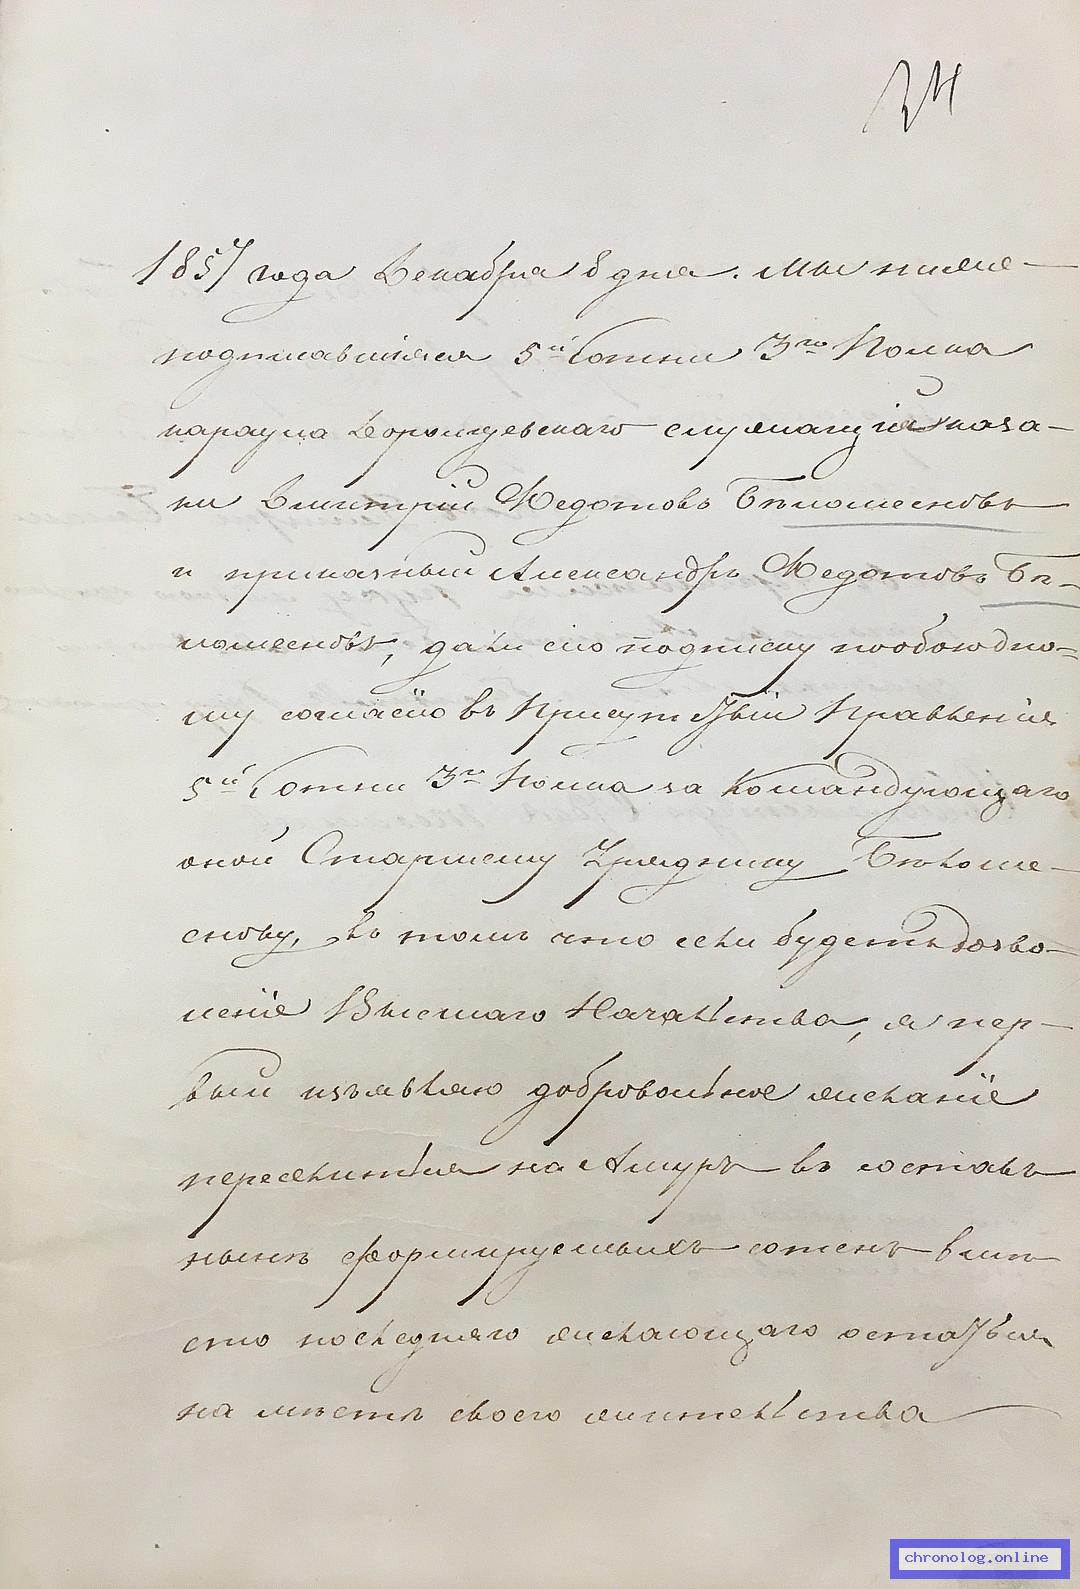 34
1857 года Декабря 8 дня. Мы ниже-
подписавшіяся 5й Сотни 3го Полка
караула Ворошуевскаго служащій каза-
ки Дмитрій Ѳедотовъ Бѣломесновъ
и приказный Александръ Ѳедотовъ Бѣ-
ломесновъ, дали сію подписку пообоюдно-
му согласію въ Присутствіи Правленія
5й Сотни 3го Полка за Командующаго
оной Старшему Уряднику Бѣломе-
снову, въ томъ что если будетъ дозво-
леніе Высшаго Начальства, я пер-
вый изъявляю добровольное желаніе
переселитися на Амуръ въ составѣ
нынѣ сформируемыхъ сотенъ вмѣ-
сто последняго желающаго остатся
на мѣстѣ своего жительства
chronolog.online